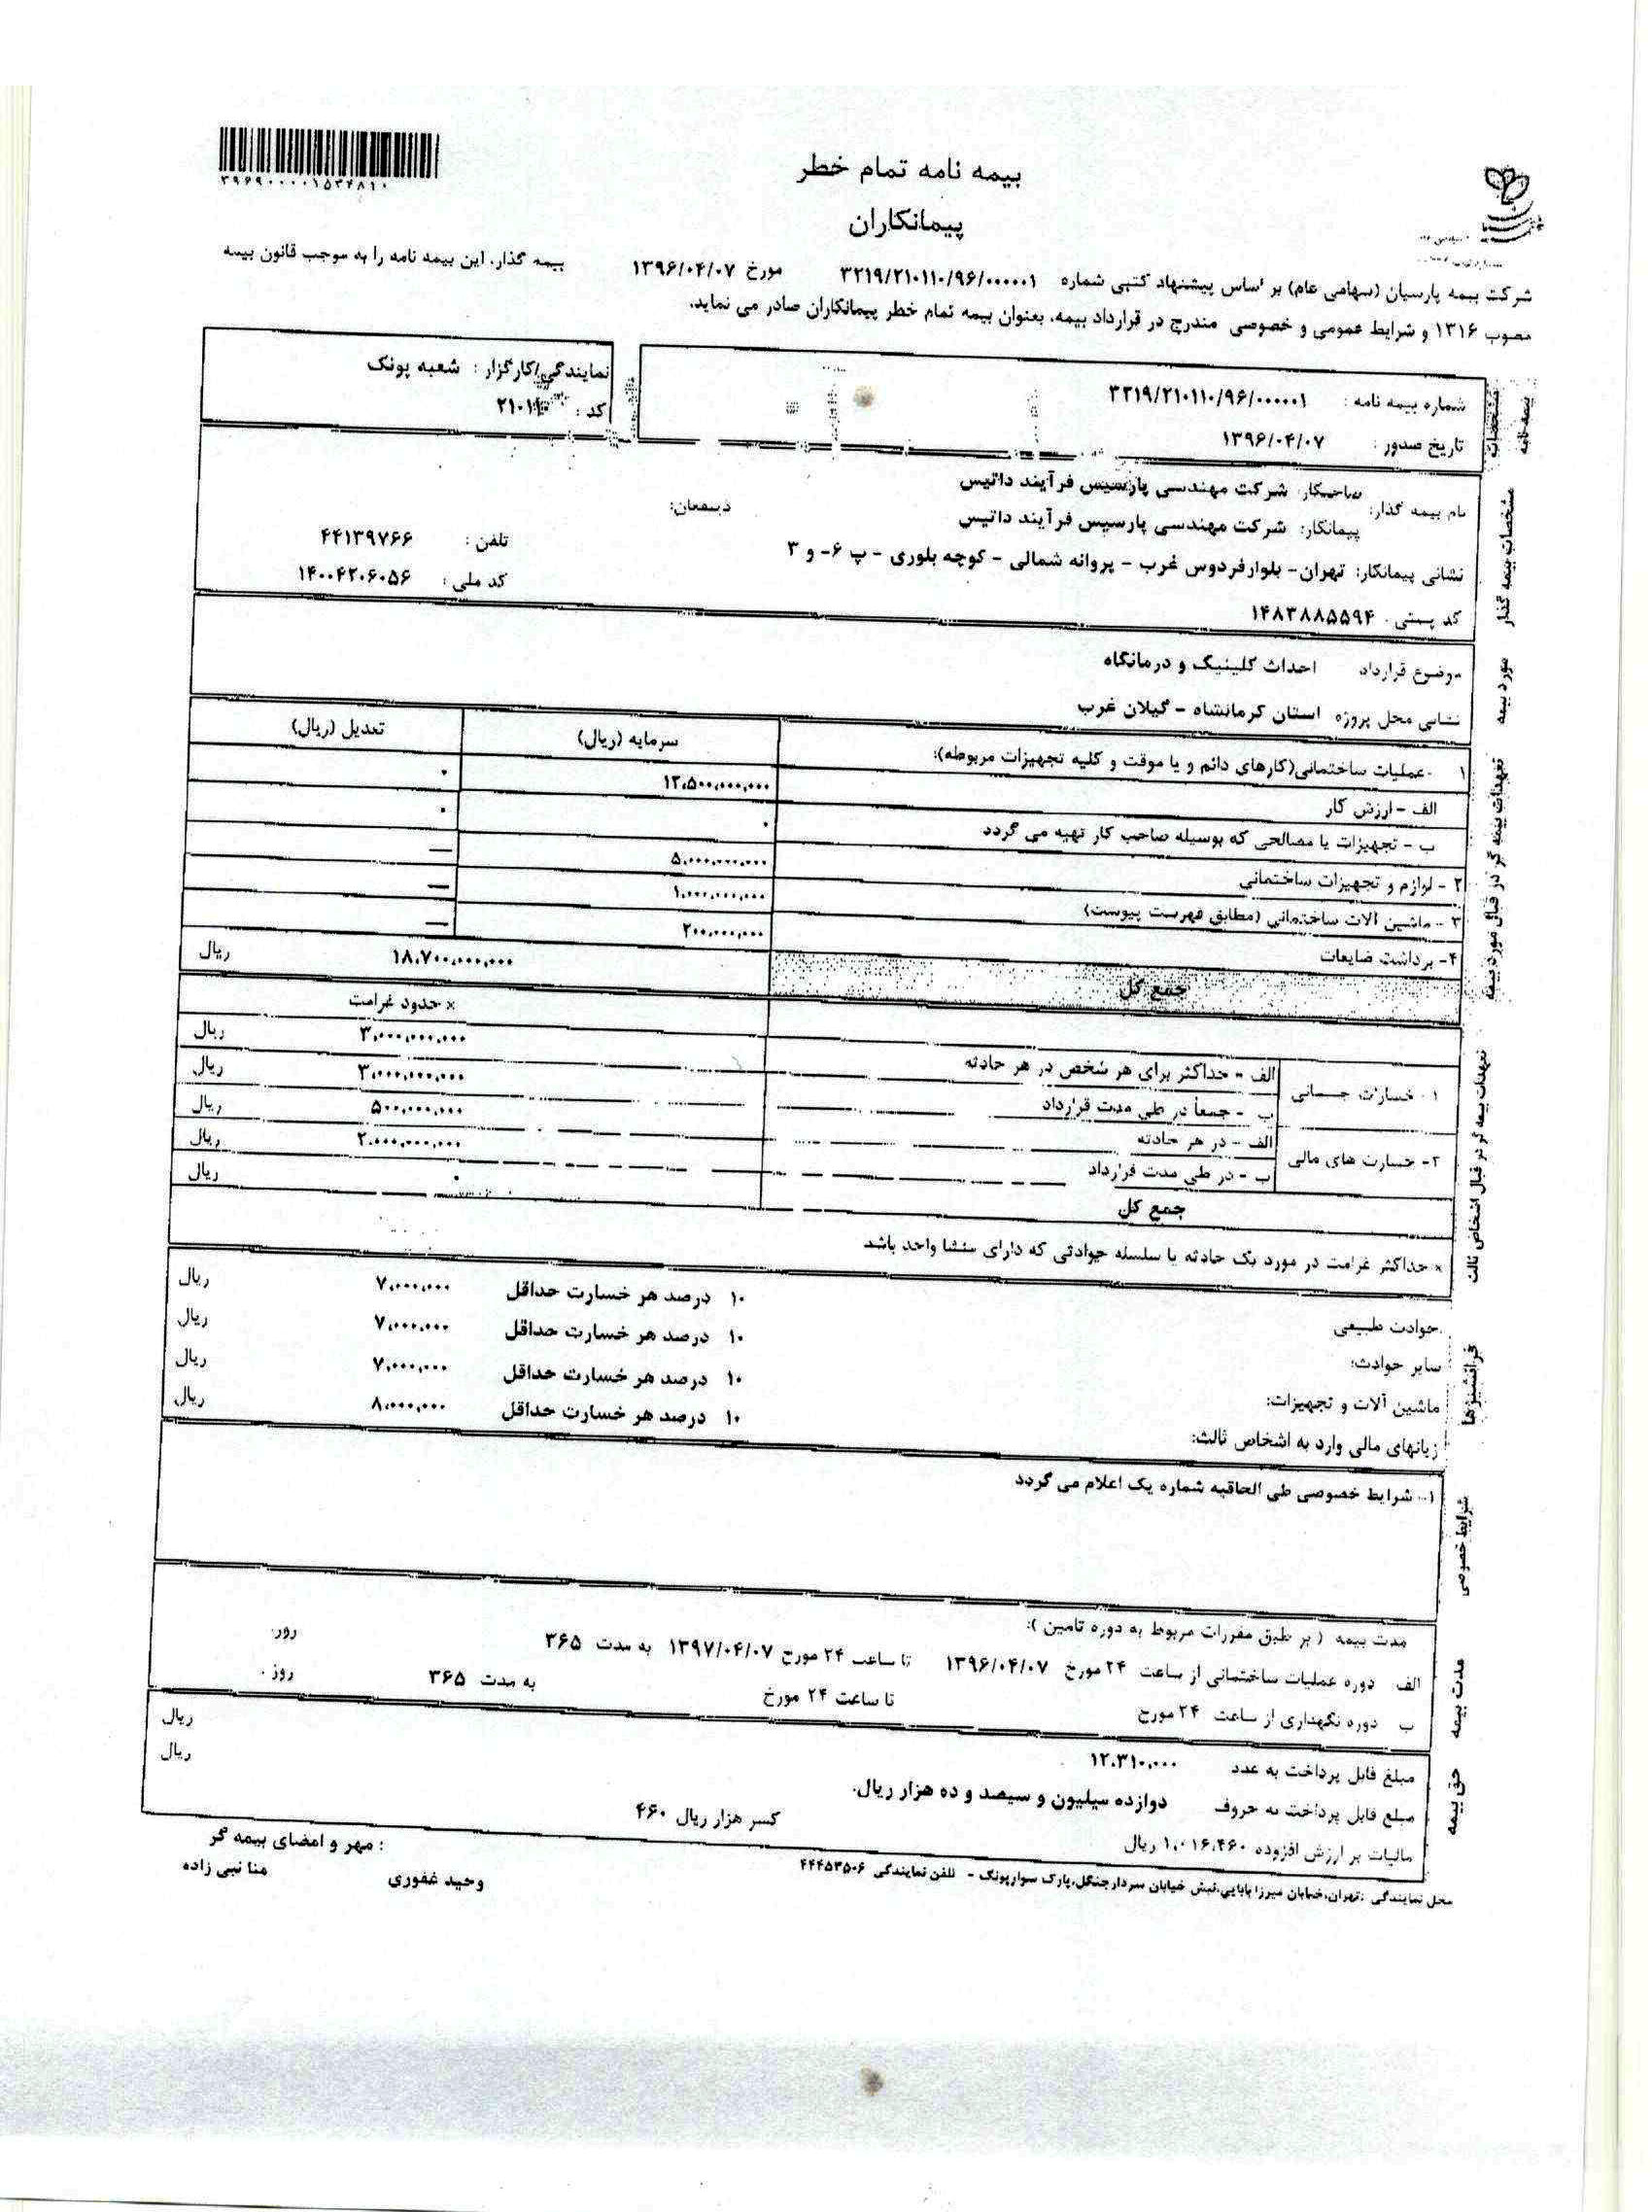 بیمه نامه تمام خطر
پیمانکاران
شرکت بیمه پارسیان (سهامی عام) بر اساس پیشنهاد کتبی شماره ۳۲۱۹/۲۱۰۱۱۰/۹۶/۰۰۰۰۰۱ مورخ ۱۳۹۶/۰۴/۰۷ بیمه گذار، این بیمه نامه را به موجب قانون بیمه
مصوب ۱۳۱۶ و شرایط عمومی و خصوصی مندرج در قرارداد بیمه، بعنوان بیمه تمام خطر پیمانکاران صادر می نماید.
مشخصات بیمه نامه
شماره بیمه نامه : ۳۲۱۹/۲۱۰۱۱۰/۹۶/۰۰۰۰۰۱
تاریخ صدور : ۱۳۹۶/۰۴/۰۷
نمایندگی/کارگزار : شعبه پونک
کد : ۲۱۰۱۱۰
مشخصات بیمه گذار
نام بیمه گذار: صاحبکار: شرکت مهندسی پارسیس فرآیند داتیس
پیمانکار: شرکت مهندسی پارسیس فرآیند داتیس ذینفعان:
نشانی پیمانکار: تهران- بلوارفردوس غرب - پروانه شمالی - کوچه بلوری - پ ۶- و ۳ تلفن : ۴۴۱۳۹۷۶۶
کد پستی : ۱۴۸۳۸۸۵۵۹۴ کد ملی : ۱۴۰۰۴۲۰۶۰۵۶
مورد بیمه
موضوع قرارداد احداث کلینیک و درمانگاه
نشانی محل پروژه استان کرمانشاه - گیلان غرب
تعهدات بیمه گر در قبال مورد بیمه
سرمایه (ریال) تعدیل (ریال)
۱ -عملیات ساختمانی(کارهای دائم و یا موقت و کلیه تجهیزات مربوطه):
الف - ارزش کار ۱۲،۵۰۰،۰۰۰،۰۰۰ ۰
ب - تجهیزات یا مصالحی که بوسیله صاحب کار تهیه می گردد ۰ ۰
۲ - لوازم و تجهیزات ساختمانی ۵،۰۰۰،۰۰۰،۰۰۰ —
۳ - ماشین آلات ساختمانی (مطابق فهرست پیوست) ۱،۰۰۰،۰۰۰،۰۰۰ —
۴- برداشت ضایعات ۲۰۰،۰۰۰،۰۰۰ —
جمع کل ۱۸،۷۰۰،۰۰۰،۰۰۰ ریال
تعهدات بیمه گر در قبال اشخاص ثالث
× حدود غرامت
۱ - خسارات جسمانی
الف - حداکثر برای هر شخص در هر حادثه ۳،۰۰۰،۰۰۰،۰۰۰ ریال
ب - جمعاً در طی مدت قرارداد ۳،۰۰۰،۰۰۰،۰۰۰ ریال
۲- خسارت های مالی
الف - در هر حادثه ۵۰۰،۰۰۰،۰۰۰ ریال
ب - در طی مدت قرارداد ۲،۰۰۰،۰۰۰،۰۰۰ ریال
جمع کل ۰ ریال
× حداکثر غرامت در مورد یک حادثه یا سلسله حوادثی که دارای منشا واحد باشد
فرانشیزها
حوادث طبیعی ۱۰ درصد هر خسارت حداقل ۷،۰۰۰،۰۰۰ ریال
سایر حوادث: ۱۰ درصد هر خسارت حداقل ۷،۰۰۰،۰۰۰ ریال
ماشین آلات و تجهیزات: ۱۰ درصد هر خسارت حداقل ۷،۰۰۰،۰۰۰ ریال
زیانهای مالی وارد به اشخاص ثالث: ۱۰ درصد هر خسارت حداقل ۸،۰۰۰،۰۰۰ ریال
شرایط خصوصی
۱- شرایط خصوصی طی الحاقیه شماره یک اعلام می گردد
مدت بیمه
مدت بیمه ( بر طبق مقررات مربوط به دوره تامین ):
الف دوره عملیات ساختمانی از ساعت ۲۴ مورخ ۱۳۹۶/۰۴/۰۷ تا ساعت ۲۴ مورخ ۱۳۹۷/۰۴/۰۷ به مدت ۳۶۵ روز.
ب دوره نگهداری از ساعت ۲۴ مورخ تا ساعت ۲۴ مورخ به مدت ۳۶۵ روز .
حق بیمه
مبلغ قابل پرداخت به عدد ۱۲،۳۱۰،۰۰۰ ریال
مبلغ قابل پرداخت به حروف دوازده میلیون و سیصد و ده هزار ریال. ریال
مالیات بر ارزش افزوده ۱،۰۱۶،۴۶۰ ریال کسر هزار ریال ۴۶۰
محل نمایندگی :تهران،خیابان میرزا بابایی،نبش خیابان سردارجنگل،پارک سوارپونک - تلفن نمایندگی ۴۴۴۵۳۵۰۶
مهر و امضای بیمه گر :
وحید غفوری منا نبی زاده